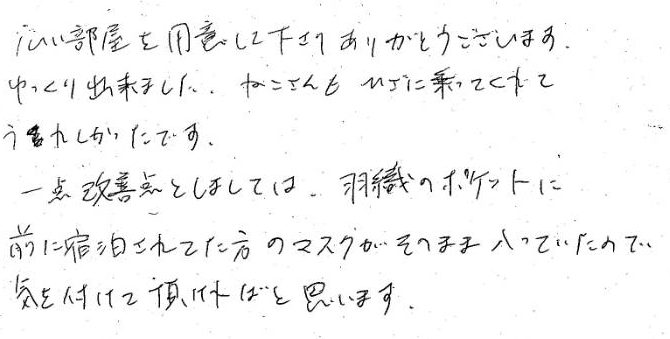 広い部屋を用意して下さりありがとうございます.
ゆっくり出来ました. ねこさんも ひざに乗ってくれて
うれしかったです.
一点改善点としましては、羽織のポケットに
前に宿泊されてた方のマスクがそのまま入っていたので、
気を付けて頂ければと思います.